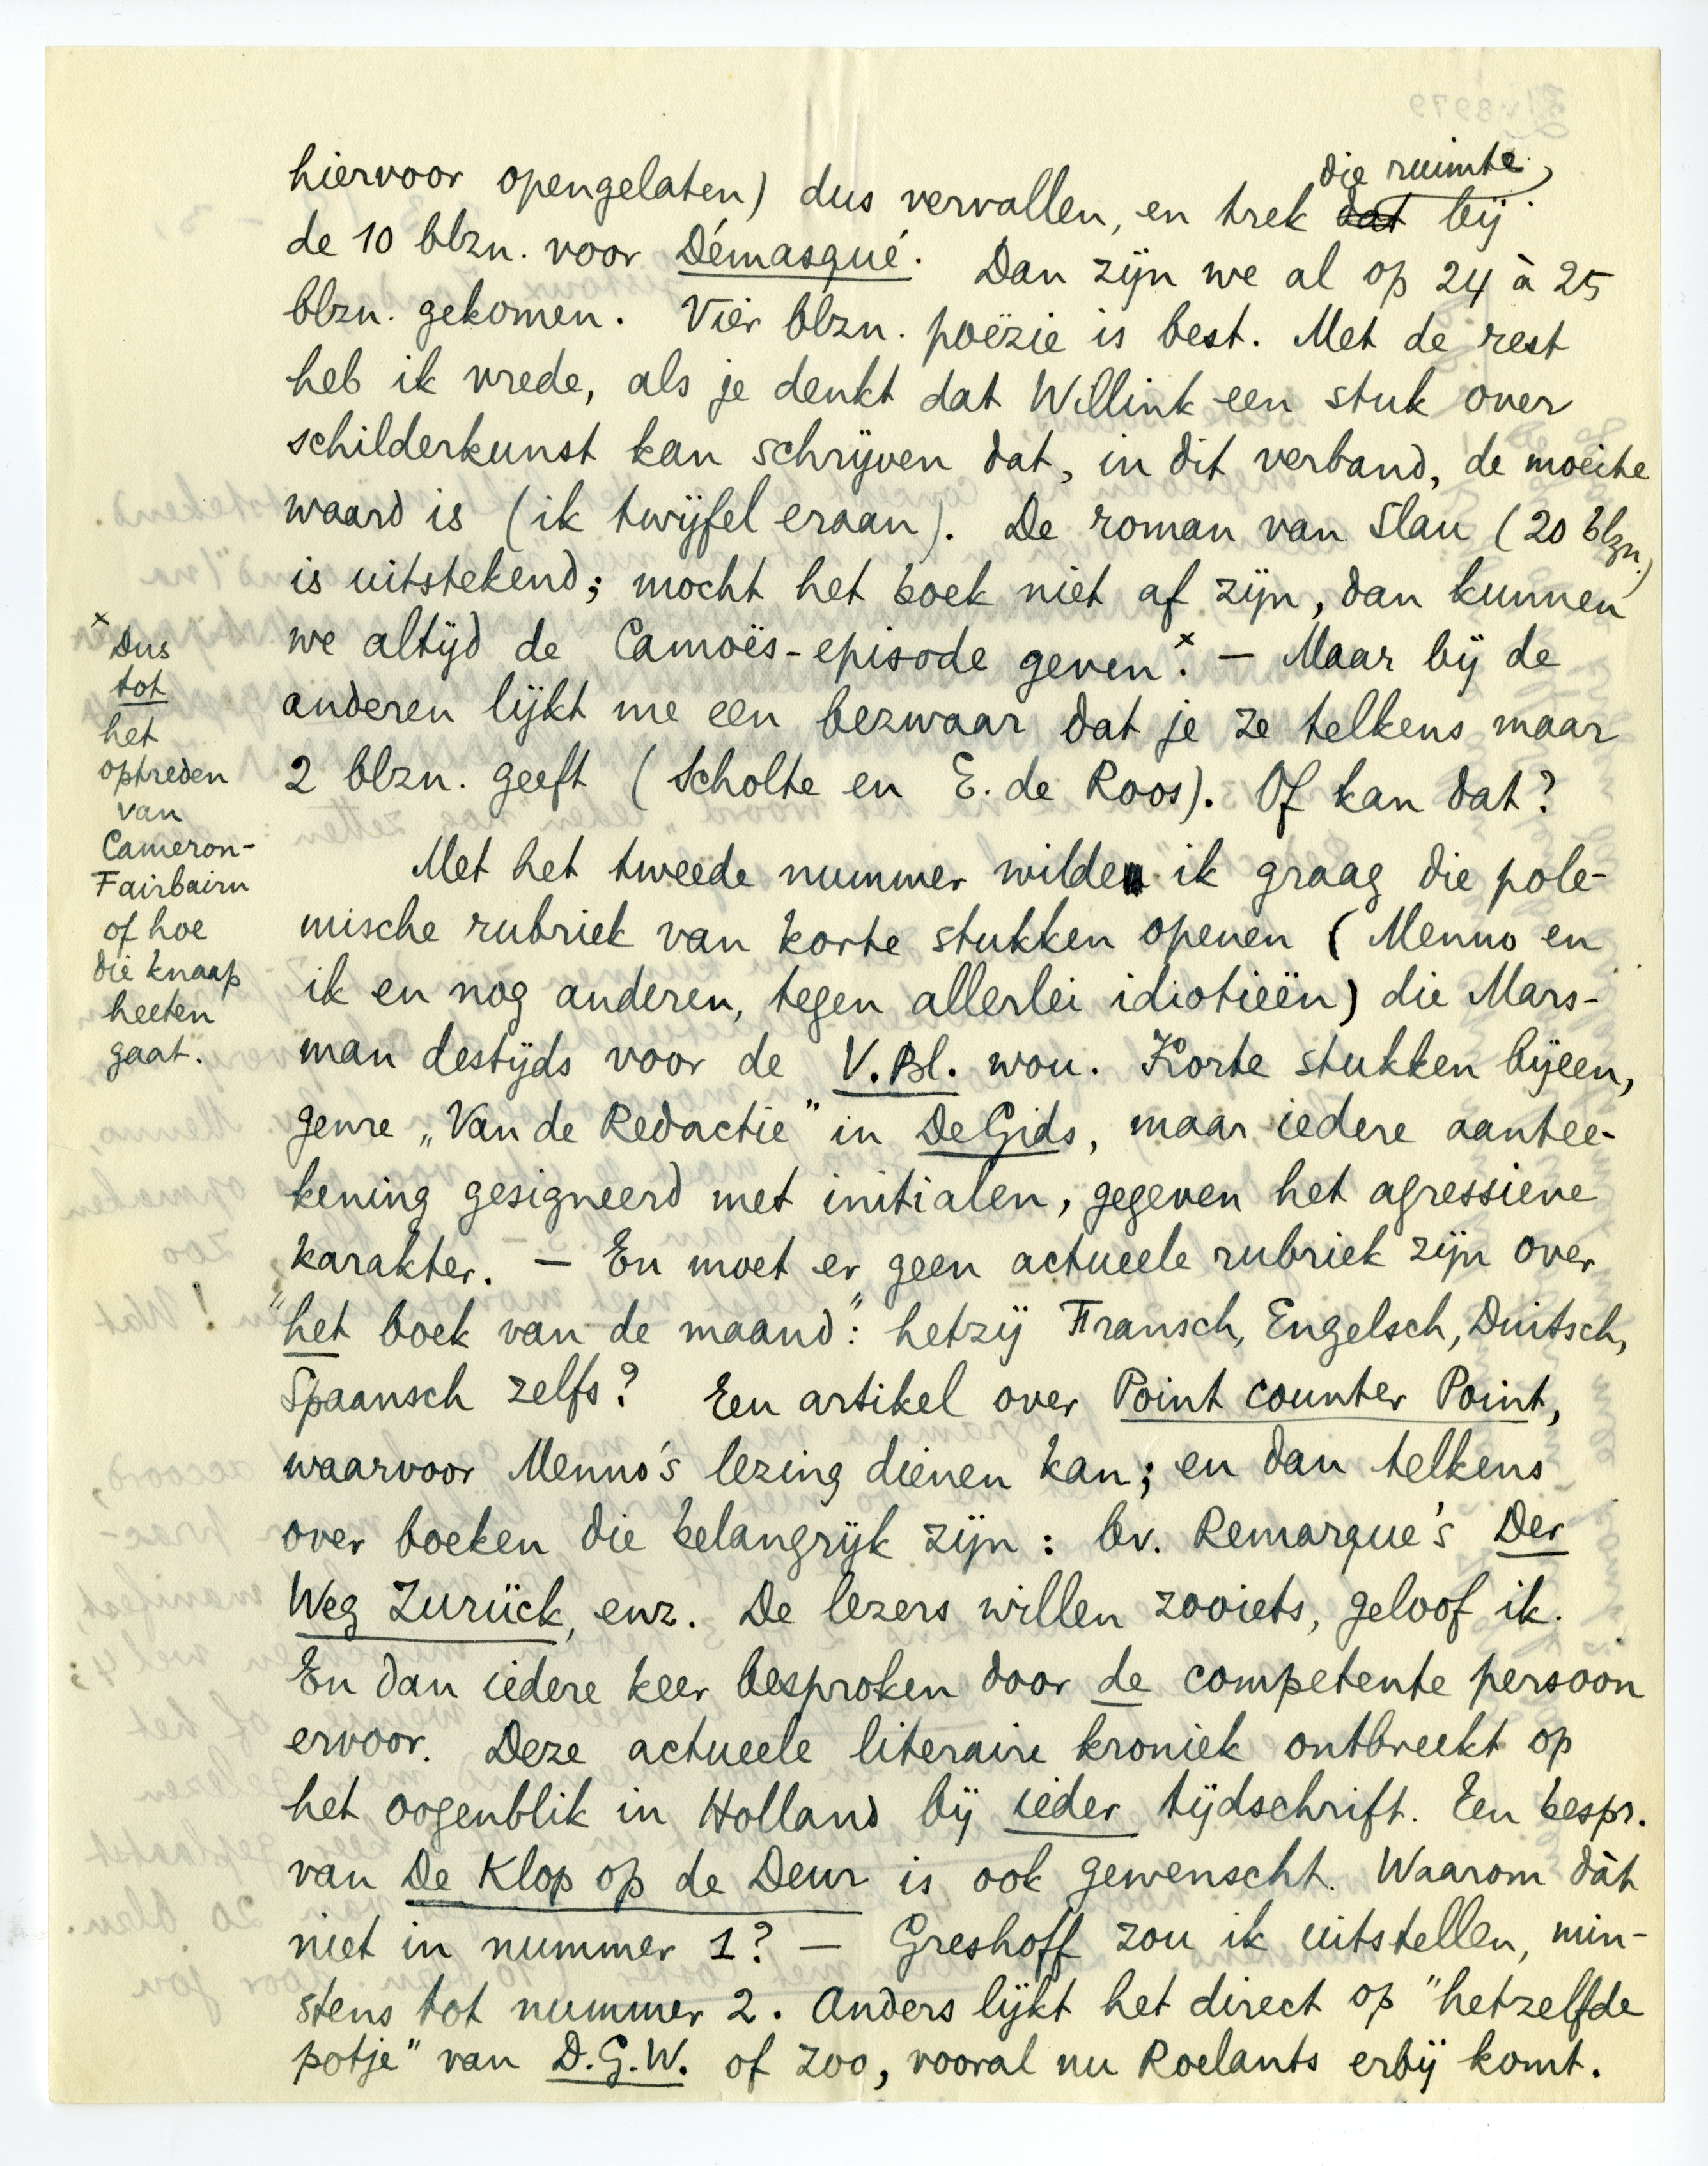 hiervoor opengelaten) dus vervallen, en trek die ruimte, ~~dat~~ bij
de 10 blzn. voor Démasqué. Dan zijn we al op 24 à 25
blzn. gekomen. Vier blzn. poëzie is best. Met de rest
heb ik vrede, als je denkt dat Willink een stuk over
schilderkunst kan schrijven dat, in dit verband, de moeite
waard is (ik twijfel eraan). De roman van Slau (20 blzn.)
is uitstekend; mocht het boek niet af zijn, dan kunnen
we altijd de Camoës-episode geven.x — Maar bij de
anderen lijkt me een bezwaar dat je ze telkens maar
2 blzn. geeft (Scholte en E. de Roos). Of kan dat?
Met het tweede nummer wilde ik graag die pole-
mische rubriek van korte stukken openen (Menno en
ik en nog anderen, tegen allerlei idiotieën) die Mars-
man destijds voor de V.Bl. wou. Korte stukken bijeen,
genre „Van de Redactie” in De Gids, maar iedere aantee-
kening gesigneerd met initialen, gegeven het agressieve
karakter. — En moet er geen actueele rubriek zijn over
"het boek van de maand": hetzij Fransch, Engelsch, Duitsch,
Spaansch zelfs? Een artikel over Point counter Point,
waarvoor Menno's lezing dienen kan; en dan telkens
over boeken die belangrijk zijn: bv. Remarque's Der
Weg Zurück, enz. De lezers willen zooiets, geloof ik.
En dan iedere keer besproken door de competente persoon
ervoor. Deze actueele literaire kroniek ontbreekt op
het oogenblik in Holland bij ieder tijdschrift. Een bespr.
van De Klop op de Deur is ook gewenscht. Waarom dàt
niet in nummer 1? — Greshoff zou ik uitstellen, min-
stens tot nummer 2. Anders lijkt het direct op "hetzelfde
potje" van D.G.W. of zoo, vooral nu Roelants erbij komt.
x Dus
tot
het
optreden
van
Cameron-
Fairbairn
of hoe
die knaap
heeten
gaat.